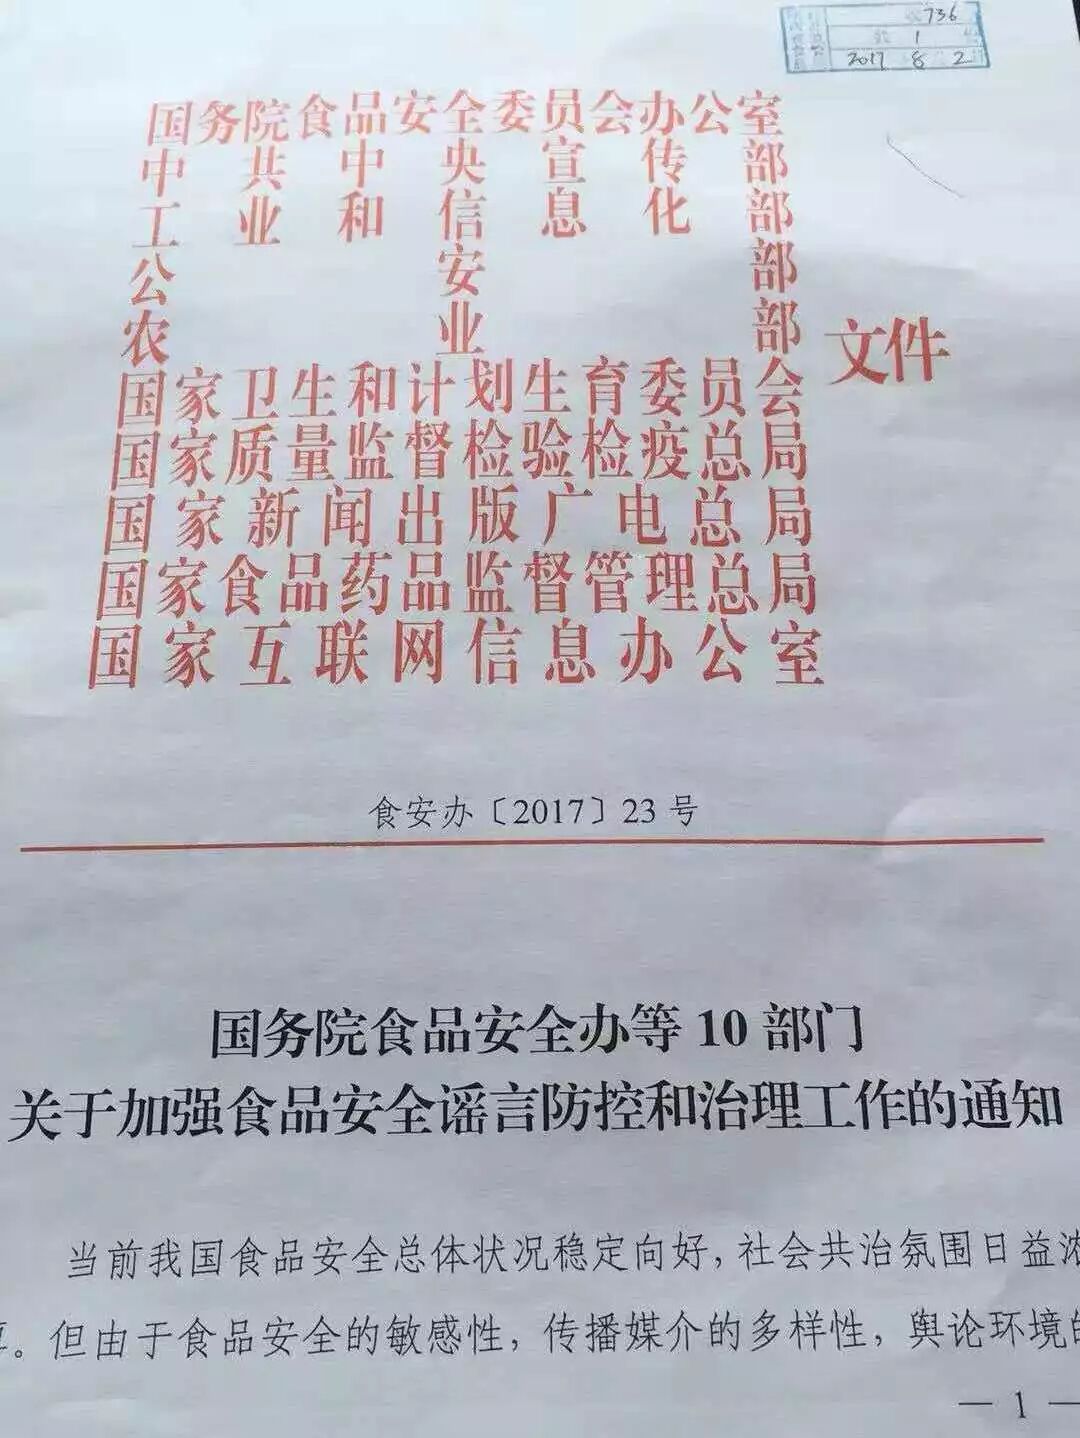 736
1
2017 8 2
国务院食品安全委员会办公室
中共中央宣传部
工业和信息化部
公安部
农业部
国家卫生和计划生育委员会
文件
国家质量监督检验检疫总局
国家新闻出版广电总局
国家食品药品监督管理总局
国家互联网信息办公室
食安办〔2017〕23号
国务院食品安全办等10部门
关于加强食品安全谣言防控和治理工作的通知
当前我国食品安全总体状况稳定向好，社会共治氛围日益浓
。但由于食品安全的敏感性，传播媒介的多样性，舆论环境的
— 1 —